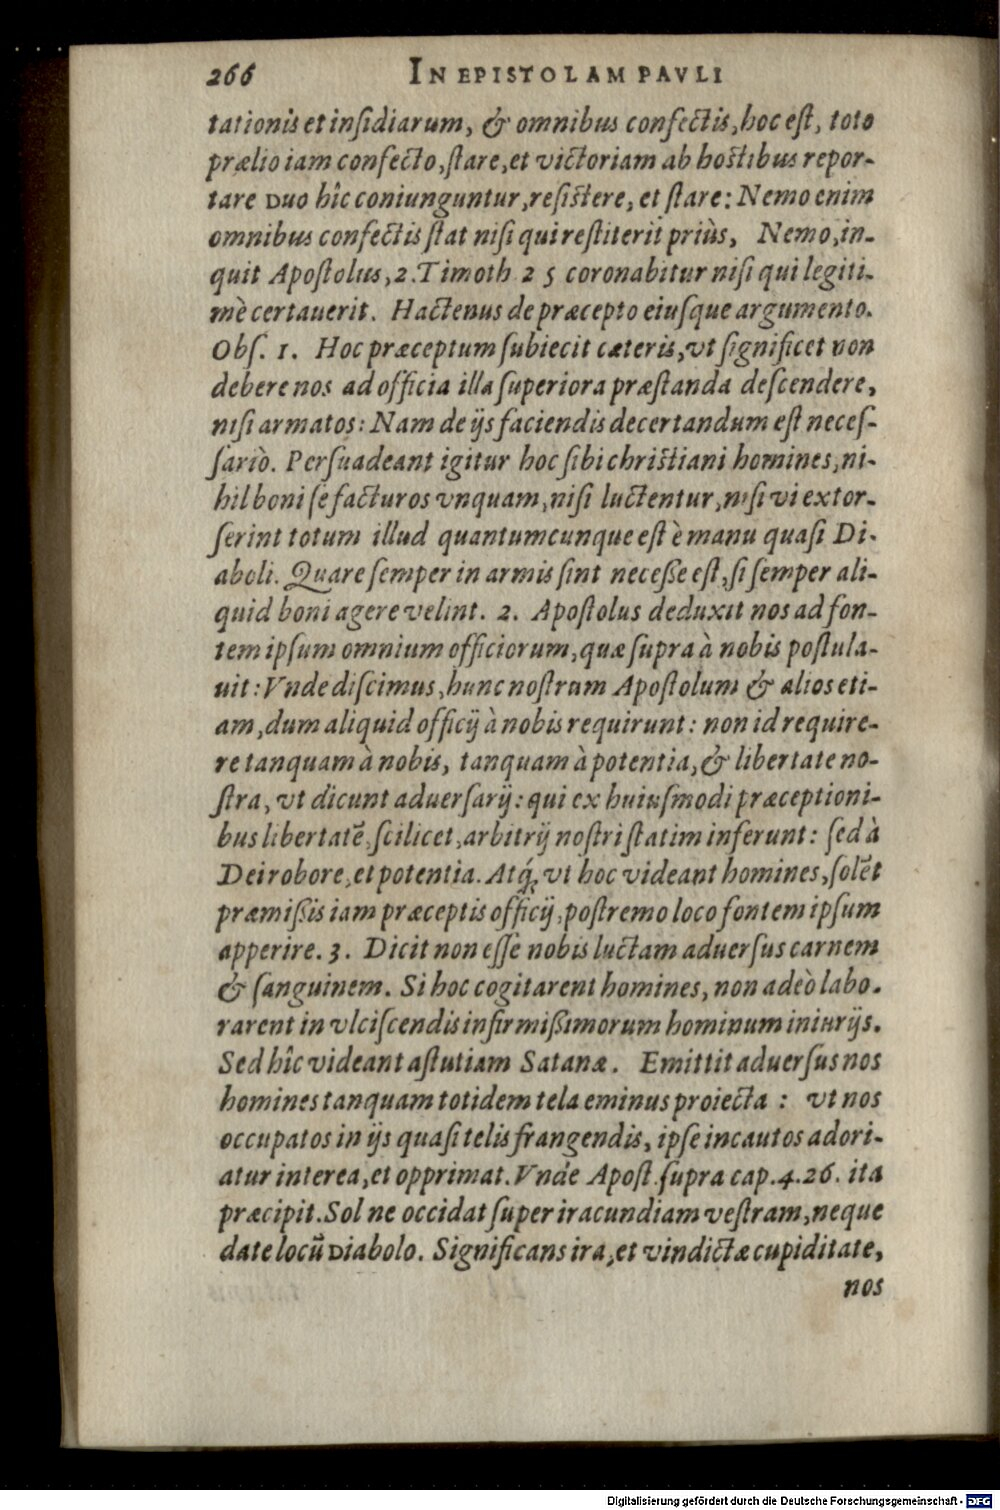 266 IN EPISTOLAM PAVLI
tationis et inſidiarum, & omnibus confectis, hoc eſt, toto
prælio iam confecto, ſtare, et victoriam ab hoſtibus repor-
tare Duo hîc coniunguntur, reſiſtere, et ſtare: Nemo enim
omnibus confectis ſtat niſi qui reſtiterit priùs, Nemo, in-
quit Apoſtolus, 2. Timoth 2 5 coronabitur niſi qui legiti-
mè certauerit. Hactenus de præcepto eiuſque argumento.
Obſ. 1. Hoc præceptum ſubiecit cæteris, vt ſignificet non
debere nos ad officia illa ſuperiora præſtanda deſcendere,
niſi armatos: Nam de ijs faciendis decertandum eſt neceſ-
ſariò. Perſuadeant igitur hoc ſibi chriſtiani homines, ni-
hil boni ſe facturos vnquam, niſi luctentur, niſi vi extor-
ſerint totum illud quantumcunque eſt è manu quaſi Di-
aboli. Quare ſemper in armis ſint neceſſe eſt, ſi ſemper ali-
quid boni agere velint. 2. Apoſtolus deduxit nos ad fon-
tem ipſum omnium officiorum, quæ ſupra à nobis poſtula-
uit: Vnde diſcimus, hunc noſtrum Apoſtolum & alios eti-
am, dum aliquid officij à nobis requirunt: non id require-
re tanquam à nobis, tanquam à potentia, & libertate no-
ſtra, vt dicunt aduerſarij: qui ex huiuſmodi præceptioni-
bus libertatē, ſcilicet, arbitrij noſtri ſtatim inferunt: ſed à
Dei robore, et potentia. Atq́; vt hoc videant homines, ſolēt
præmißis iam præceptis officij, poſtremo loco fontem ipſum
apperire. 3. Dicit non eſſe nobis luctam aduerſus carnem
& ſanguinem. Si hoc cogitarent homines, non adeò labo-
rarent in vlciſcendis infirmißimorum hominum iniurijs.
Sed hîc videant aſtutiam Satanæ. Emittit aduerſus nos
homines tanquam totidem tela eminus proiecta : vt nos
occupatos in ijs quaſi telis frangendis, ipſe incautos adori-
atur interea, et opprimat. Vnde Apoſt. ſupra cap. 4. 26. ita
præcipit. Sol ne occidat ſuper iracundiam veſtram, neque
date locū Diabolo. Significans ira, et vindictæ cupiditate,
nos
Digitalisierung gefördert durch die Deutsche Forschungsgemeinschaft - DFG